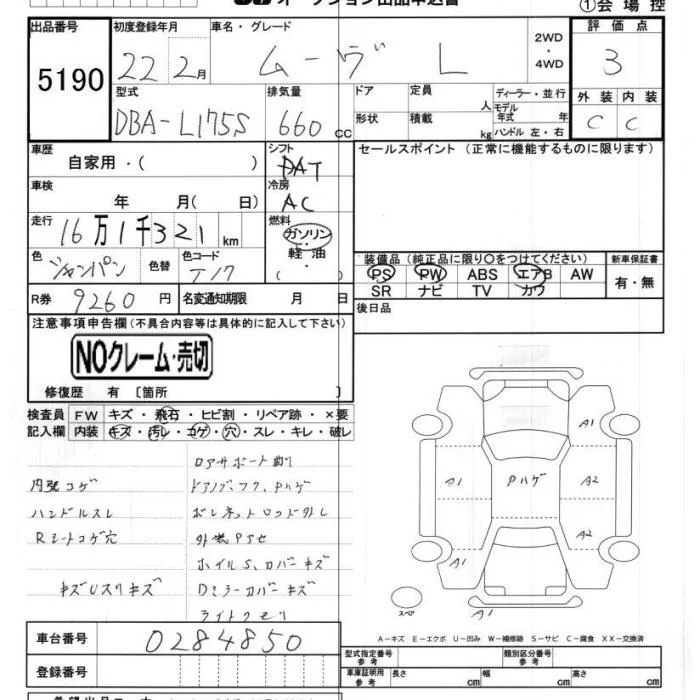 オークション出品申込書
①会場控
出品番号 初度登録年月 車名・グレード 評価点
5190 22 2月 ムーヴ L 2WD・4WD 3
型式 排気量 ドア 定員 人 ディーラー・並行 外装 内装
DBA-L175S 660cc 形状 積載 kg モデル年式 年 ハンドル 左・右 C C
車歴 シフト セールスポイント(正常に機能するものに限ります)
自家用・( ) DAT
車検 冷房
年 月( 日) AC
走行 燃料
16万1千321km ガソリン・軽油
色 色替 色コード 装備品(純正品に限り○をつけてください) 新車保証書
シャンパン T17 PS PW ABS エアB AW 有・無
SR ナビ TV カワ
R券 9260円 名変通知期限 月 日 後日品
注意事項申告欄(不具合内容等は具体的に記入して下さい)
NOクレーム・売切
修復歴 有 〔箇所 〕
検査員 FW キズ・飛石・ヒビ割・リペア跡・×要
記入欄 内装 キズ・汚レ・コゲ・穴・スレ・キレ・破レ
ロアサポート割
内張コゲ ドアノブ、フク、Pハゲ
ハンドルスレ ボンネットロッド外し
Rシートコゲ穴 外装Pヤセ
ホイルS、カバーキズ
キズUスリキズ Dミラーカバーキズ
ライトクモリ
A1
A1 Pハゲ A2
A2
A1
スペ A1
A-キズ E-エクボ U-凹み W-補修跡 S-サビ C-腐食 XX-交換済
車台番号 0284850
型式指定番号 参考 類別区分番号 参考
登録番号 車庫証明用 参考 長さ cm 幅 cm 高さ cm